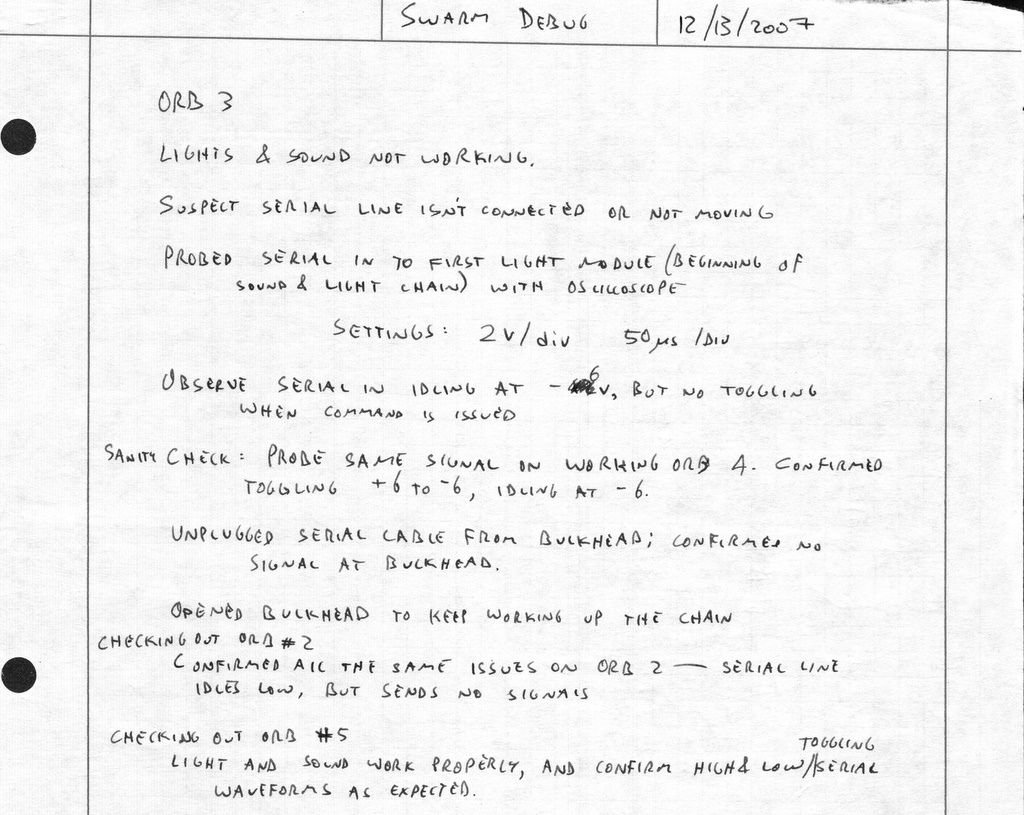 SWARM DEBUG 12/13/2007
ORB 3
LIGHTS & SOUND NOT WORKING.
SUSPECT SERIAL LINE ISN'T CONNECTED OR NOT MOVING
PROBED SERIAL IN TO FIRST LIGHT MODULE (BEGINNING OF
SOUND & LIGHT CHAIN) WITH OSCILLOSCOPE
SETTINGS: 2V/div 50μs /DIV
OBSERVE SERIAL IN IDLING AT -6V, BUT NO TOGGLING
WHEN COMMAND IS ISSUED
SANITY CHECK: PROBE SAME SIGNAL ON WORKING ORB 4. CONFIRMED
TOGGLING +6 TO -6, IDLING AT -6.
UNPLUGGED SERIAL CABLE FROM BULKHEAD; CONFIRMED NO
SIGNAL AT BULKHEAD.
OPENED BULKHEAD TO KEEP WORKING UP THE CHAIN
CHECKING OUT ORB #2
CONFIRMED ALL THE SAME ISSUES ON ORB 2 — SERIAL LINE
IDLES LOW, BUT SENDS NO SIGNALS
CHECKING OUT ORB #5
LIGHT AND SOUND WORK PROPERLY, AND CONFIRM HIGH & LOW/TOGGLING/SERIAL
WAVEFORMS AS EXPECTED.